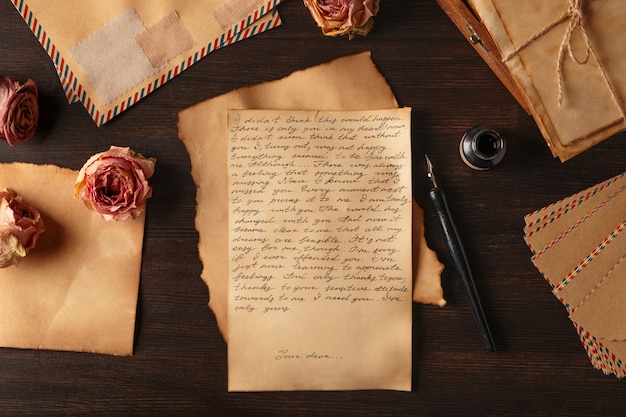 I didn't think this would happen.
There is only you in my heart now.
I didn't even think that without
you I turns out, was not happy.
Everything seemed to be fine with
me although... There was always
a feeling that something was
missing. Now I know that I
missed you. Every moment next
to you proves it to me. I am truly
happy with you. The world has
changed with you. And now it
became clear to me that all my
dreams are feasible. It's not
easy for me, though. I'm sorry
if I ever offended you. I'm
just now learning to appreciate
feelings. And only thanks to you,
thanks to your sensitive attitude
towards to me. I need you. I'm
only yours.
Your dear...